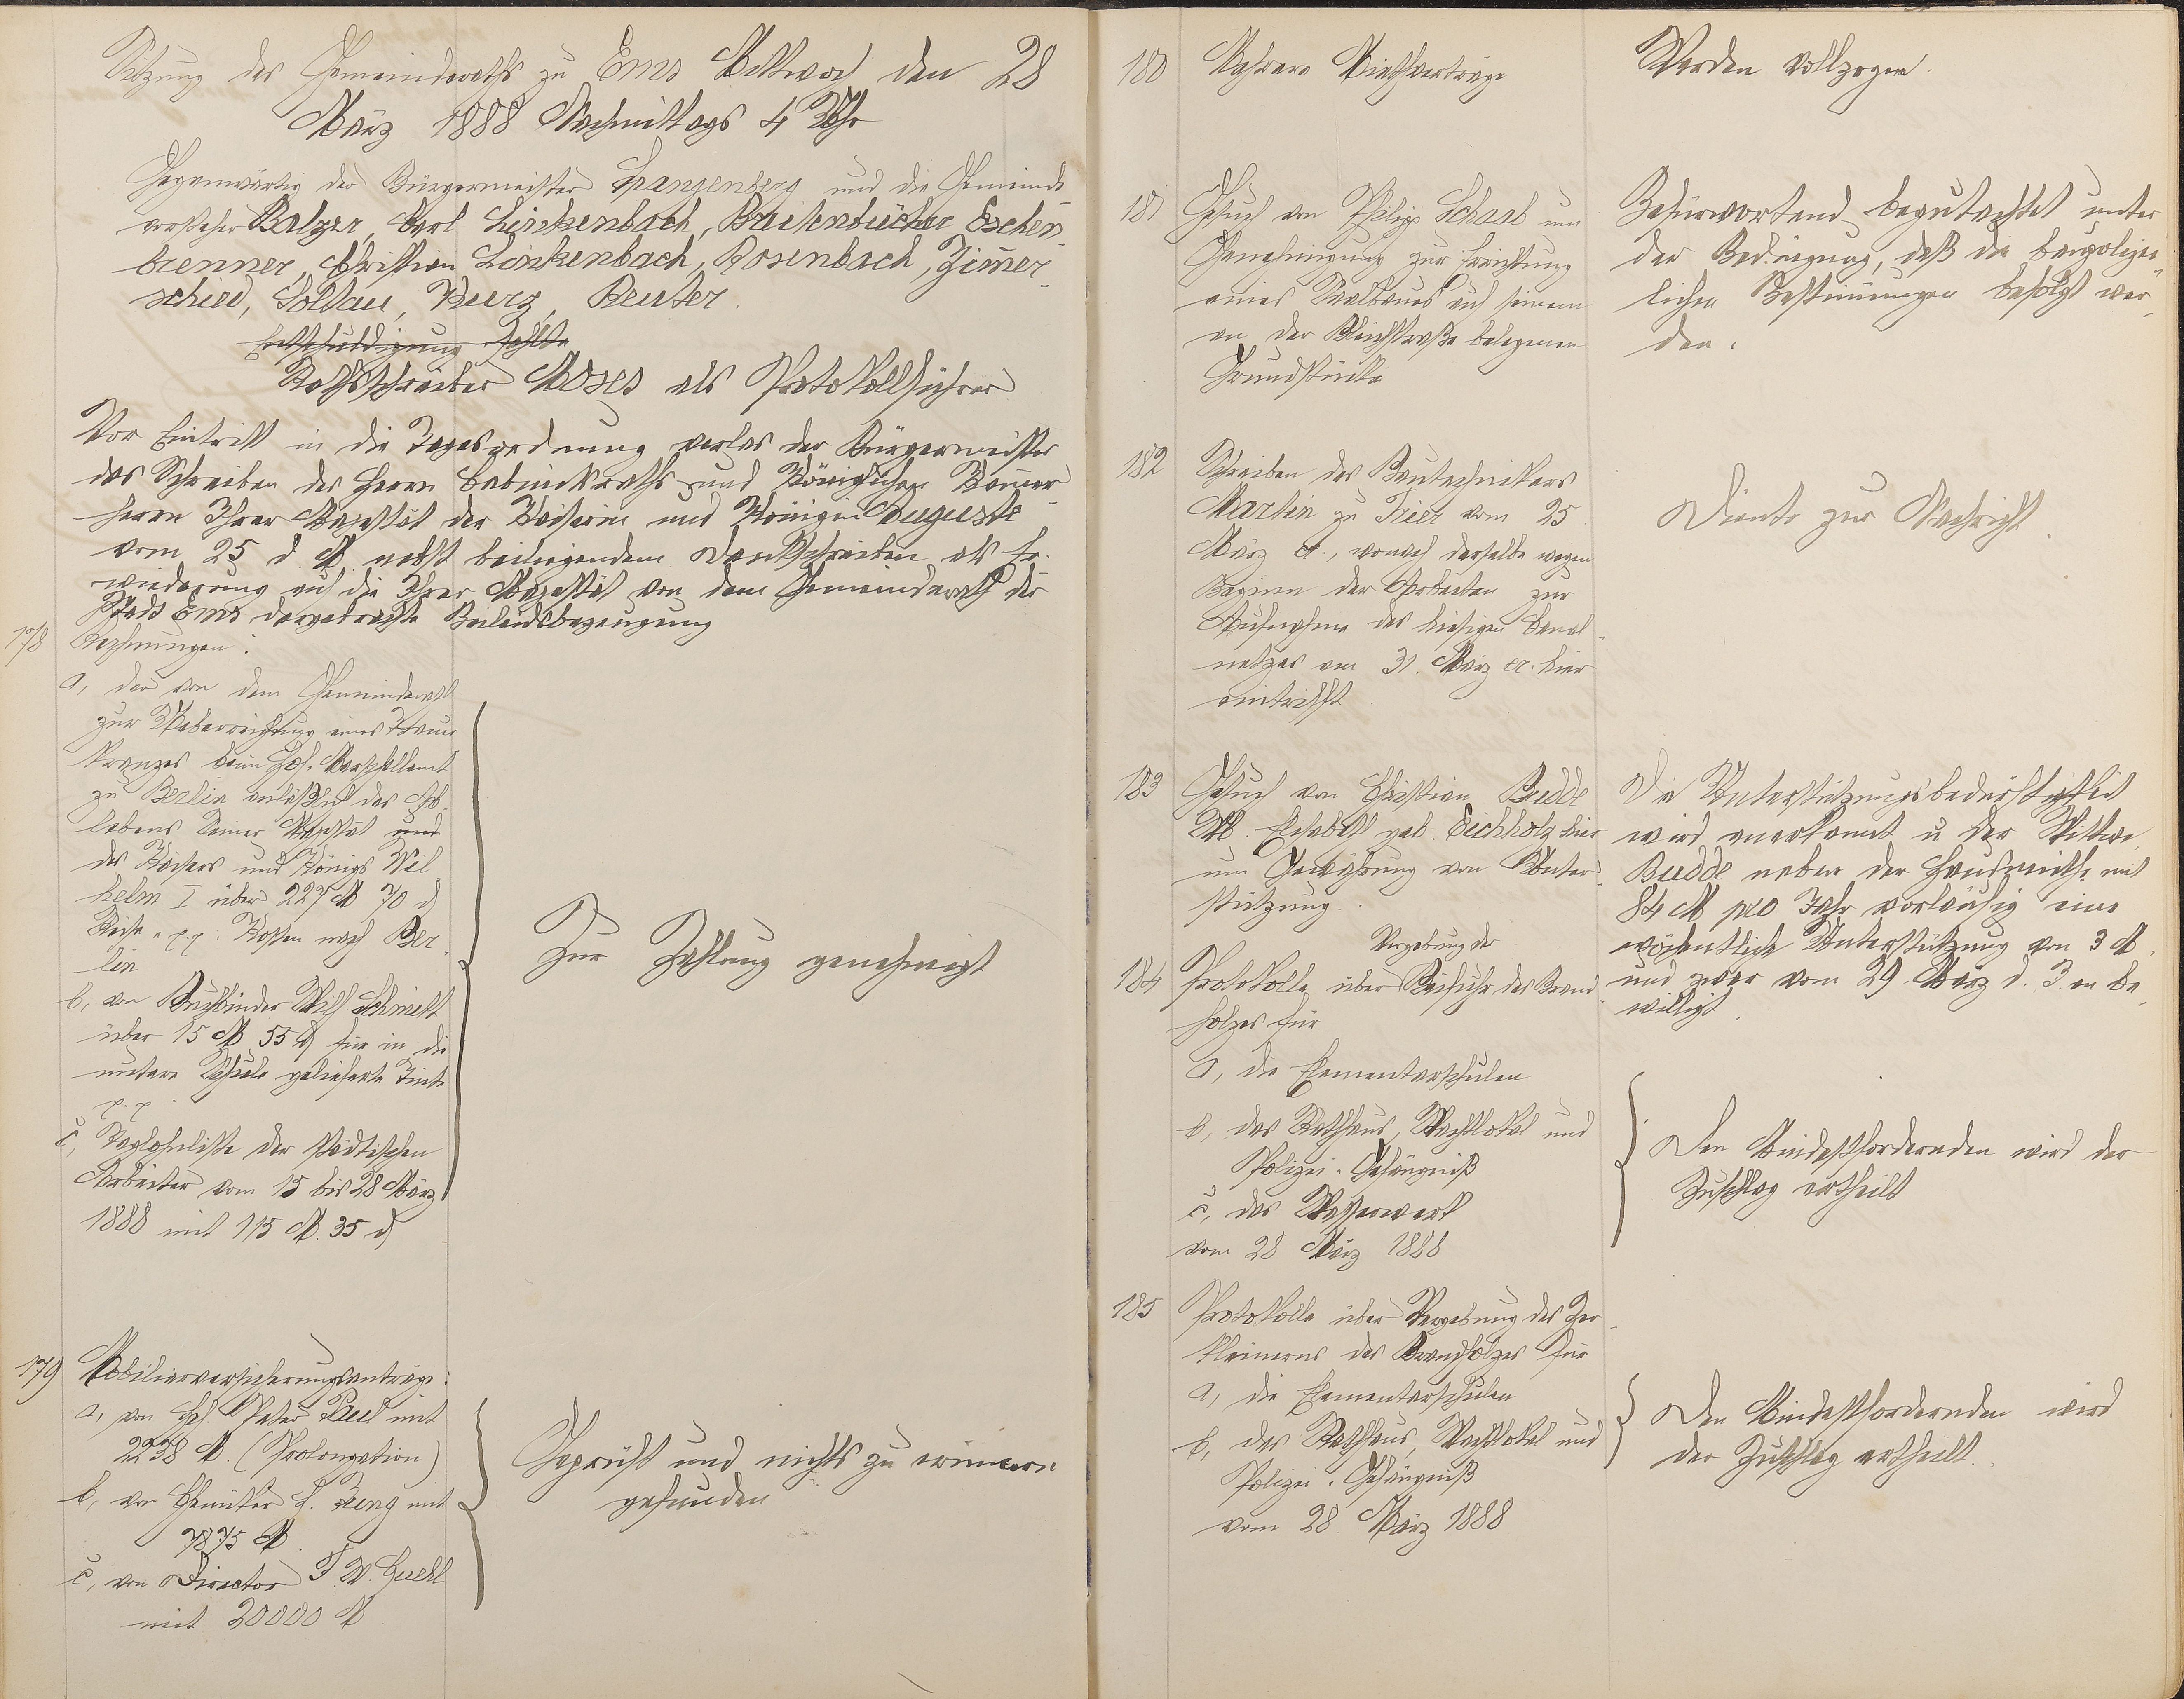 Sitzung des Gemeinderaths zu Ems Mittwoch den 28
März 1888 Nachmittags 4 Uhr
Gegenwärtig der Bürgermeister Spangenberg und die Gemeinde
vorsteher Balzer, Carl Linkenbach, Breitenbücher Eschen
brenner, Christian Linkenbach, Rosenbach, Zimmer
schied, Soldau, Kurz, Reuter.
Entschuldigung fehlte
Rathsschreiber Moses als Protokollführer
Vor Eintritt in die Tagesordnung verlas der Bürgermeister
das Schreiben des Herrn Cabinetsraths und Königlichen Kammer
herrn Ihrer Majestät der Kaiserin und Königin Auguste
vom 25 d. M. nebst beiliegendem Dankschreiben als Er
wiederung auf die Ihrer Majestät von dem Gemeinderath der
Stadt Ems dargebrachte Beileidsbezeugung
178 Rechnungen:
a, der von dem Gemeinderath
zur Ueberreichung eines Trauer
kranzes beim Hof-Marschallamt
zu Berlin anläßlich des Ab
lebens Seiner Majestät und
des Kaisers und Königs Wil
helm I über 227 M 70 d
Reise p.p. Kosten nach Ber
lin
b, von Buchbinder Wilh Schmidt
über 15 M 55 d für in die
untere Schule gelieferte Tinte
p.p
c, Taglohnliste der städtischen
Arbeiter vom 15 bis 28 März
1888 mit 115 M. 35 d
Zur Zahlung genehmigt
179 Mobiliarversicherungsanträge:
a, von Joh. Peter Paul mit
2238 M. (Prolongation)
b, von Chemiker L. mit
7875 M
c, von Director F. W.
mit 20000 M
Geprüft und nichts zu erinnern
gefunden
180 Mehrere Miethverträge
Werden vollzogen.
181 Gesuch von Philipp Schaab um
Genehmigung zur Errichtung
eines auf seinem
an der Bleichstraße belegenen
Grundstücke
Befürwortend begutachtet unter
der Bedingung, daß die baupolizei
lichen Bestimmungen befolgt wer
den.
182 Schreiben des Bautechnikers
Martin zu Trier vom 25
März cr., wonach derselbe wegen
Beginn der Arbeiten zur
Aufnahme des hiesigen Canal
netzes am 31. März cr. hier
eintrifft
Diente zur Nachricht.
183 Gesuch von Christian Budde
Wb. Elisabeth geb. Eichholz hier
um Gewährung von Unter
stützung.
Die Unterstützungsbedürftigkeit
wird anerkannt u der Wittwe
Budde neben der Hausmiethe mit
84 M pro Jahr vorläufig eine
wöchentliche Unterstützung von 3 M.
und zwar vom 29. März d. J. an be
willigt.
Vergebung der
184 Protokolle über Beifuhr des Brand
holzes für
a, die Elementarschulen
b, das Rathaus, Wachtlokal und
Polizei-Gefängniß
c, das Wasserwerk
vom 28 März 1888
Den Mindestfordernden wird der
Zuschlag ertheilt
185 Protokolle über Vergebung des Zer
kleinerns des Brandholzes für
a, die Elementarschulen
b, das Rathaus, Wachtlokal und
Polizei-Gefängniß
vom 28. März 1888
Den Mindestfordernden wird
der Zuschlag ertheilt.